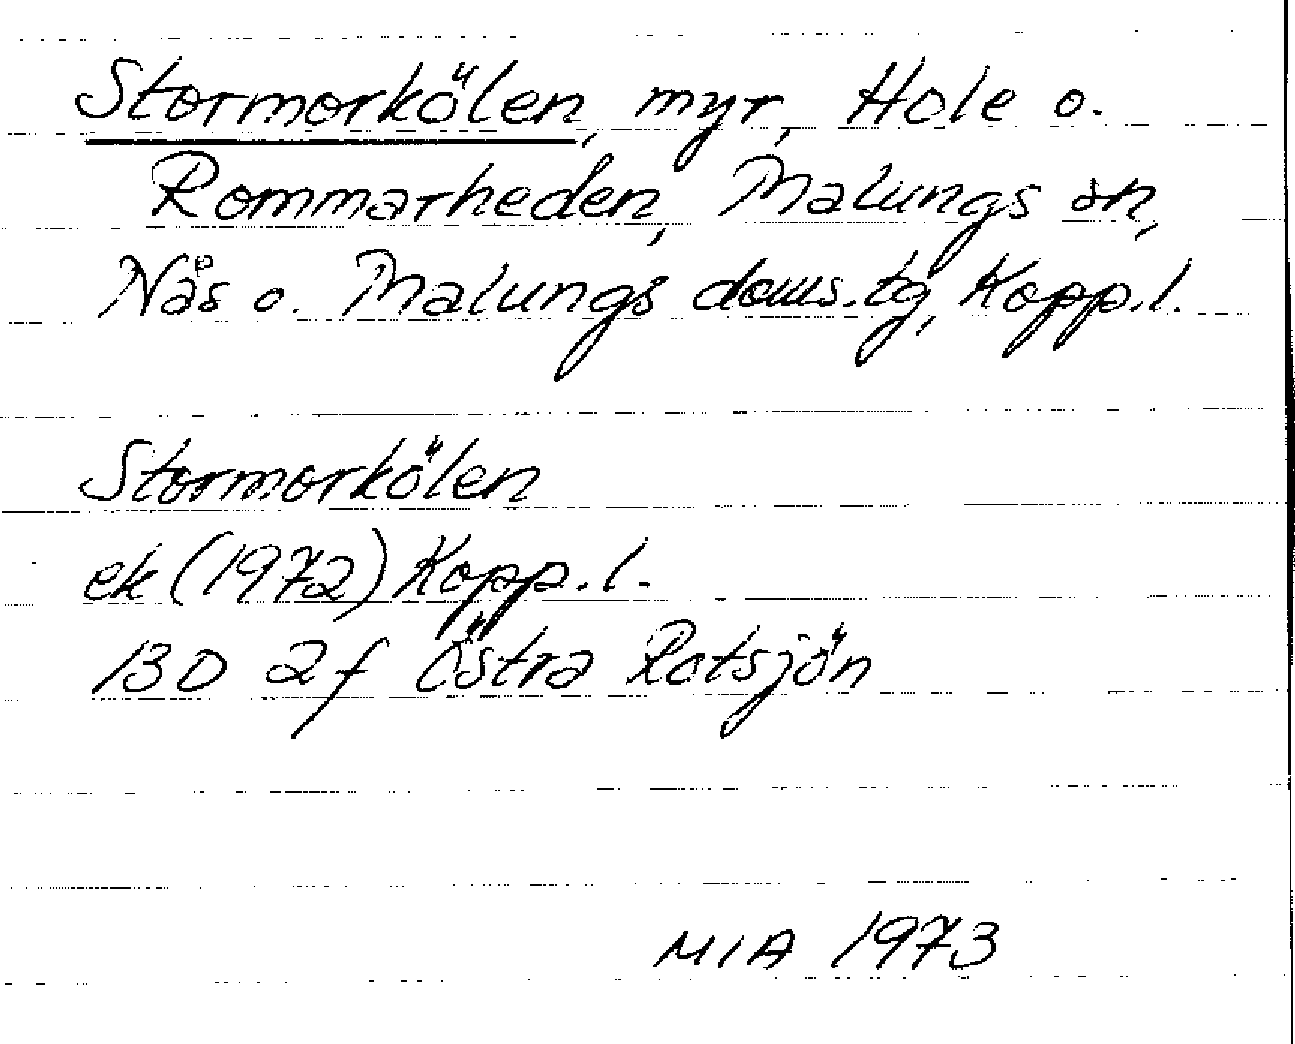 Stormorkölen, myr, Hole o.
Rommarheden, Malungs sn,
Nås o. Malungs doms. tg, Kopp. l.
Stormorkölen
ek (1972) Kopp. l.
13D 2f Östra Rotsjön
MIA 1973